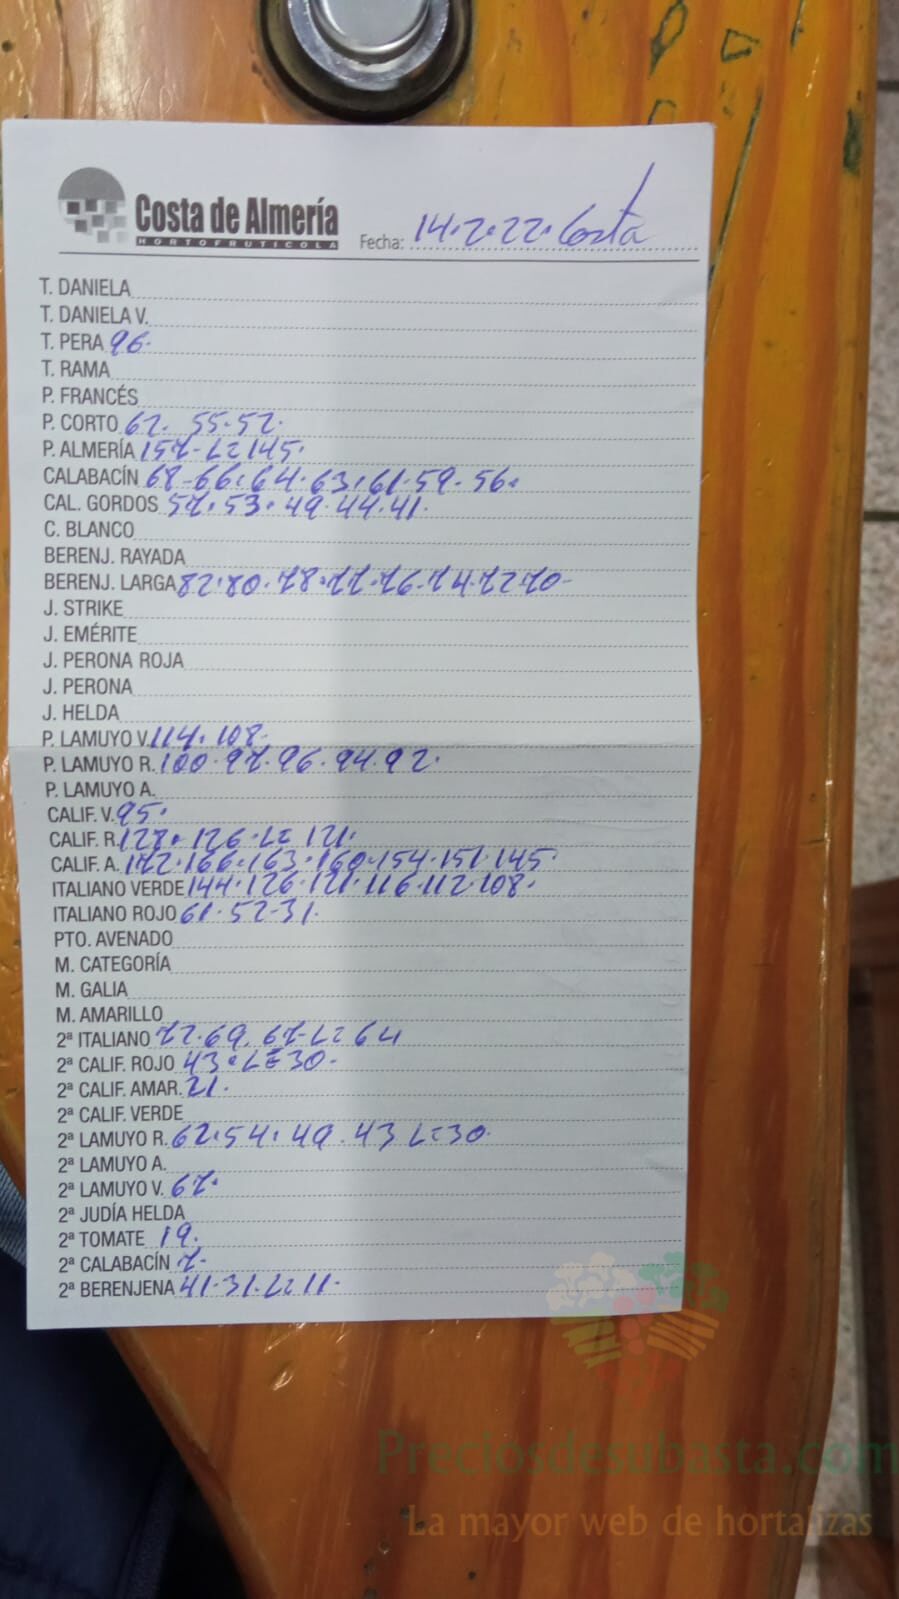 Costa de Almería
HORTOFRUTICOLA
Fecha: 14.2.22. Costa
T. DANIELA
T. DANIELA V.
T. PERA 96.
T. RAMA
P. FRANCÉS
P. CORTO 62. 55.52.
P. ALMERÍA 157-L=145.
CALABACÍN 68-66.64.63.61.59.56.
CAL. GORDOS 57.53.49.44.41.
C. BLANCO
BERENJ. RAYADA
BERENJ. LARGA 82.80.78.77.76.74.72.70-
J. STRIKE
J. EMÉRITE
J. PERONA ROJA
J. PERONA
J. HELDA
P. LAMUYO V. 114.108.
P. LAMUYO R. 100.97.96.94.92.
P. LAMUYO A.
CALIF. V. 95.
CALIF. R. 128.126.L=121.
CALIF. A. 172.166.163.160.154.151.145.
ITALIANO VERDE 144.126.121.116.112.108.
ITALIANO ROJO 61.52-31.
PTO. AVENADO
M. CATEGORÍA
M. GALIA
M. AMARILLO
2ª ITALIANO 72.69.67-L=64
2ª CALIF. ROJO 43.L=30-
2ª CALIF. AMAR. 21.
2ª CALIF. VERDE
2ª LAMUYO R. 62.54.49.43 L=30.
2ª LAMUYO A.
2ª LAMUYO V. 67.
2ª JUDÍA HELDA
2ª TOMATE 19.
2ª CALABACÍN 7-
2ª BERENJENA 41.31.L=11-
Preciosdesubasta.com
La mayor web de hortalizas